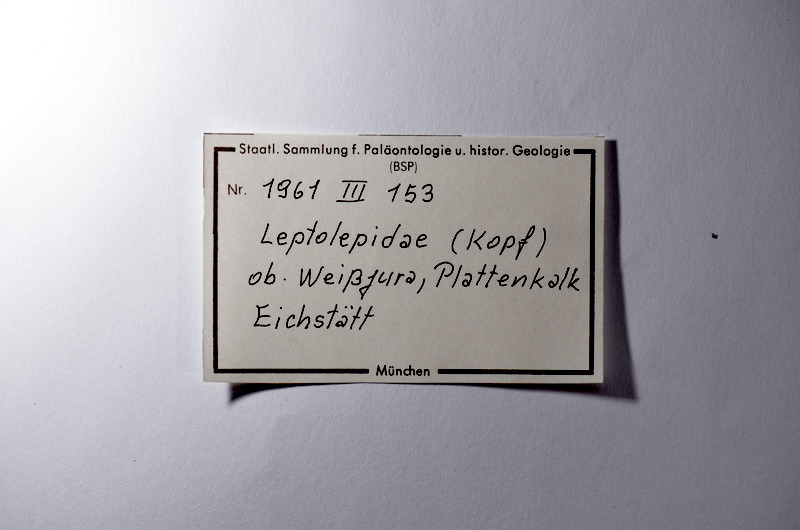 Staatl. Sammlung f. Paläontologie u. histor. Geologie
(BSP)
Nr. 1961 III 153
Leptolepidae (Kopf)
ob. Weißjura, Plattenkalk
Eichstätt
München